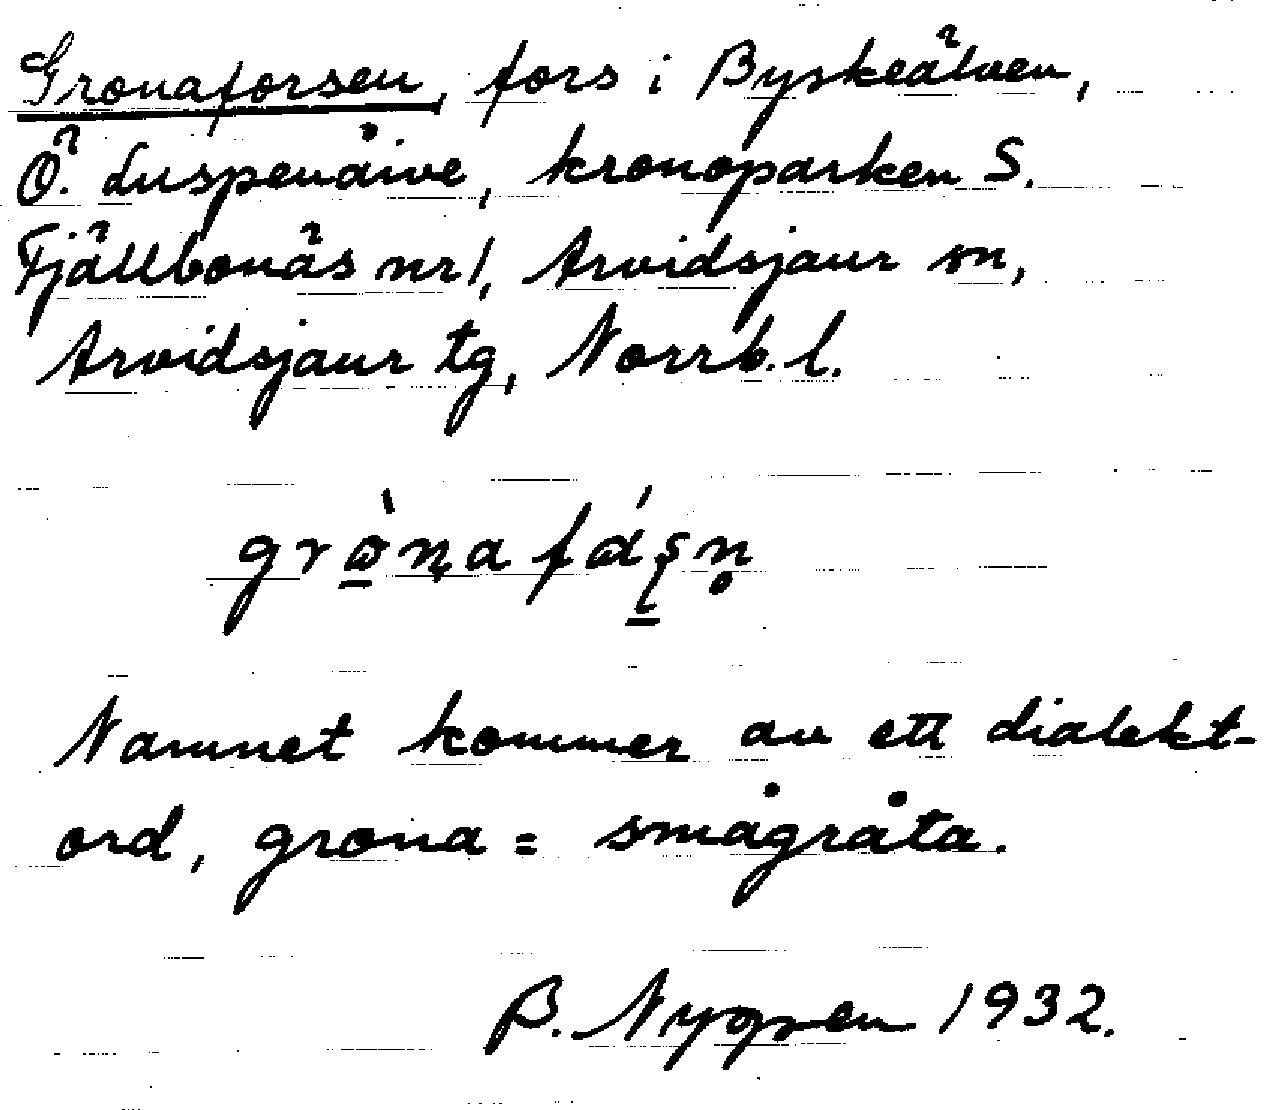 Gronaforsen, fors i Byskeälven,
Ö. Luspenåive, kronoparken S.
Fjällbonäs nr 1, Arvidsjaur sn,
Arvidsjaur tg, Norrb. l.
Namnet kommer av ett dialekt-
ord, grona = smågråta.
B. Nygren 1932.